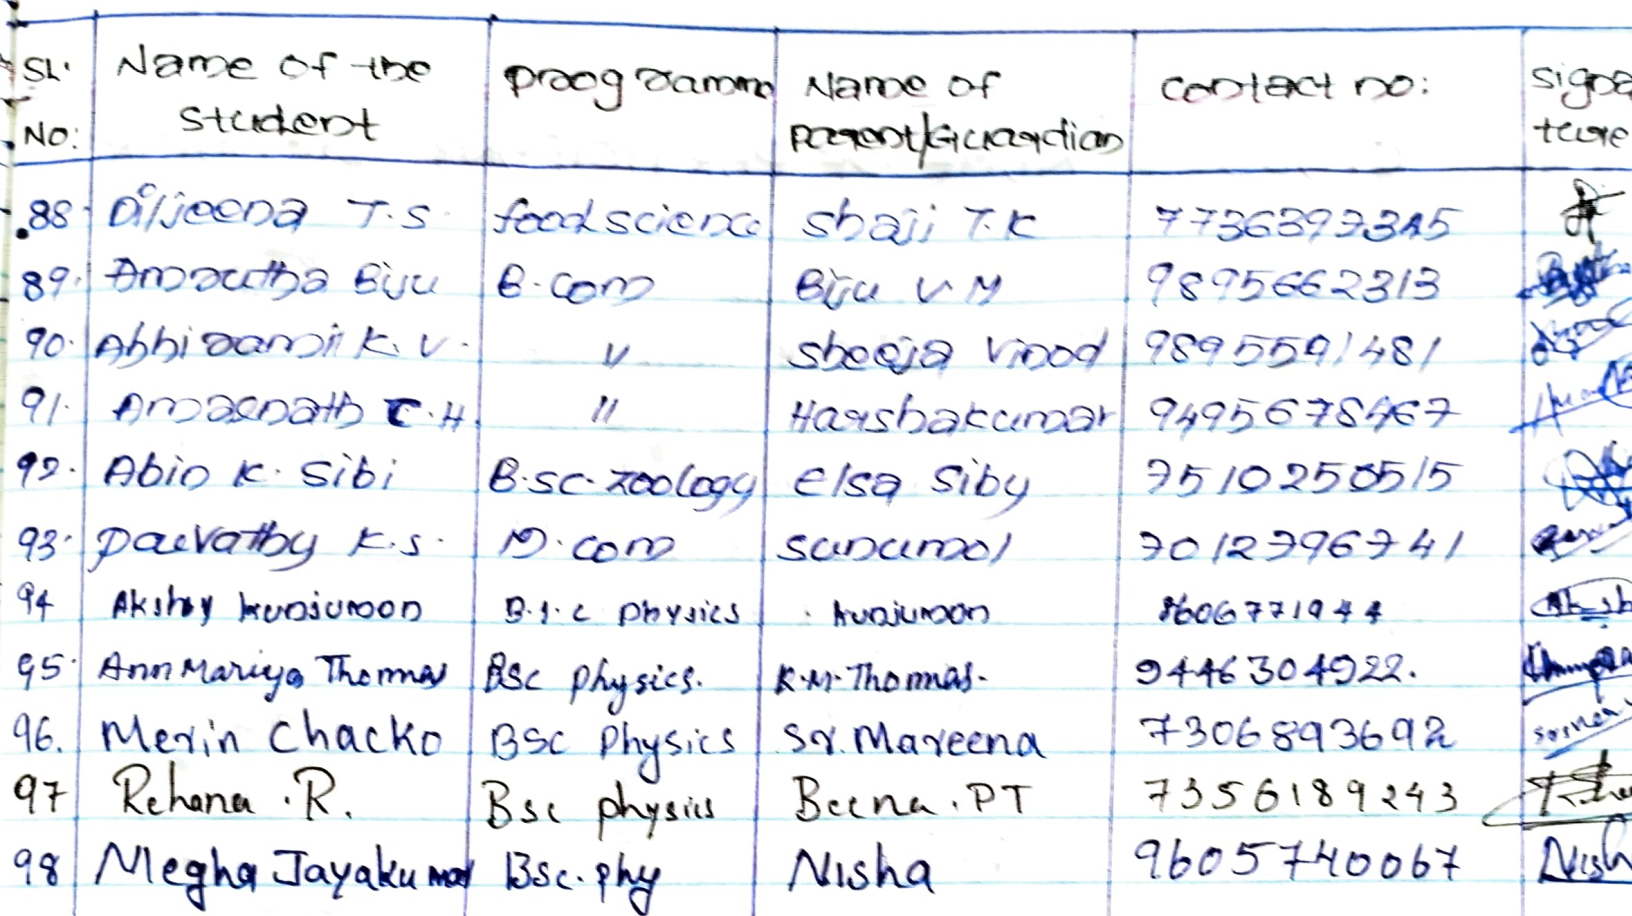 Sl. Name of the programme Name of contact no: signa
No: student parent/Guardian ture
88 Diljeena T.S. food science Shaji T.K
89. Amrutha Biju B.com Biju V M 9895662313
90. Abhirami K.V. " Sheeja Vinod 9895591481
91. Amarnath C.H. " Harshakumar 9495678467
92. Abin K. Sibi B.sc. zoology Elsa Siby 7510250515
93. Parvathy K.S. M.com Sunumol 7012796741
94 Akshay Kunjumon B.s.c physics Kunjumon 8606771944
95. Ann Mariya Thomas Bsc physics. K.M. Thomas. 9446304922.
96. Merin Chacko BSC Physics Sr. Mareena 7306893692
97 Rehana .R. Bsc physics Beena .PT 7356189243
98 Megha Jayakumar Bsc. phy Nisha 9605740067 Nish